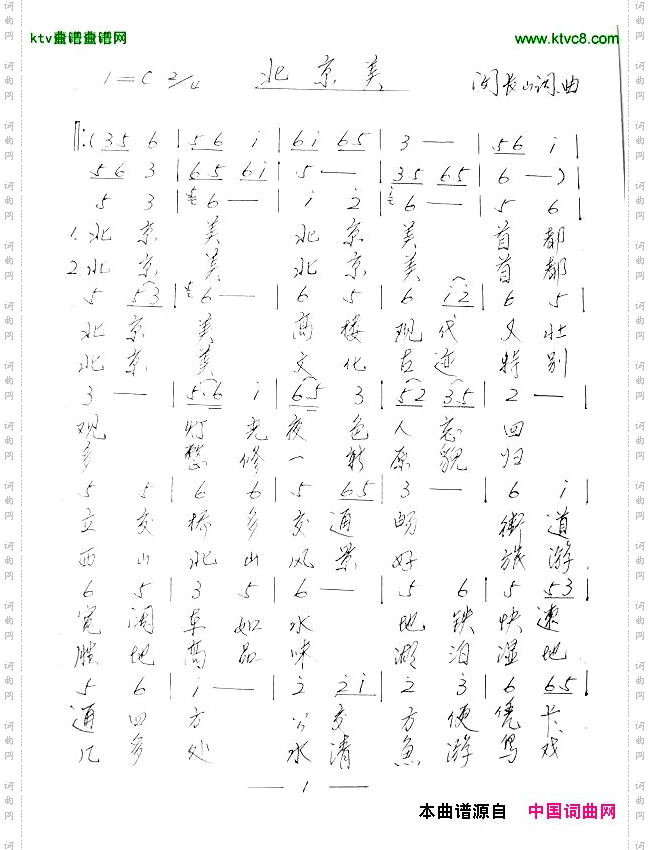 ktv曲谱曲谱网
www.ktvc8.com
1=C 2/4 北京美 闵长山词曲
‖:( 35 6 | 56 i | 6i 65 | 3 — | 56 i |
56 3 | 65 6i | 5 — | 35 65 | 6 — ) |
5 3 | 6 — | i 2 | 6 — | 5 6 |
1.北京 美 北京 美 首都
2.北京 美 北京 美 首都
5 53 | 6 — | 6 5 | 6 i2 | 6 5 |
北京 美 高楼 现代 又壮
北京 美 文化 古迹 特别
3 — | 5·6 i | 65 3 | 52 3·5 | 2 — |
观 灯光 夜色 人忘 回
多 整修 一新 原貌 归
5 5 | 6 6 | 5 65 | 3 — | 6 i |
立交 桥多 交通 畅 街道
西山 北山 风景 好 旅游
6 5 | 3 5 | 6 — | 5 6 | 5 53 |
宽阔 车如 水 地铁 快速
胜地 高品 味 湖泊 湿地
5 6 | i — | 2 2i | 2 3 | 6 65 |
通四 方 公交 方便 凭卡
几多 处 水清 鱼游 鸟戏
— 1 —
本曲谱源自 中国词曲网
词曲网